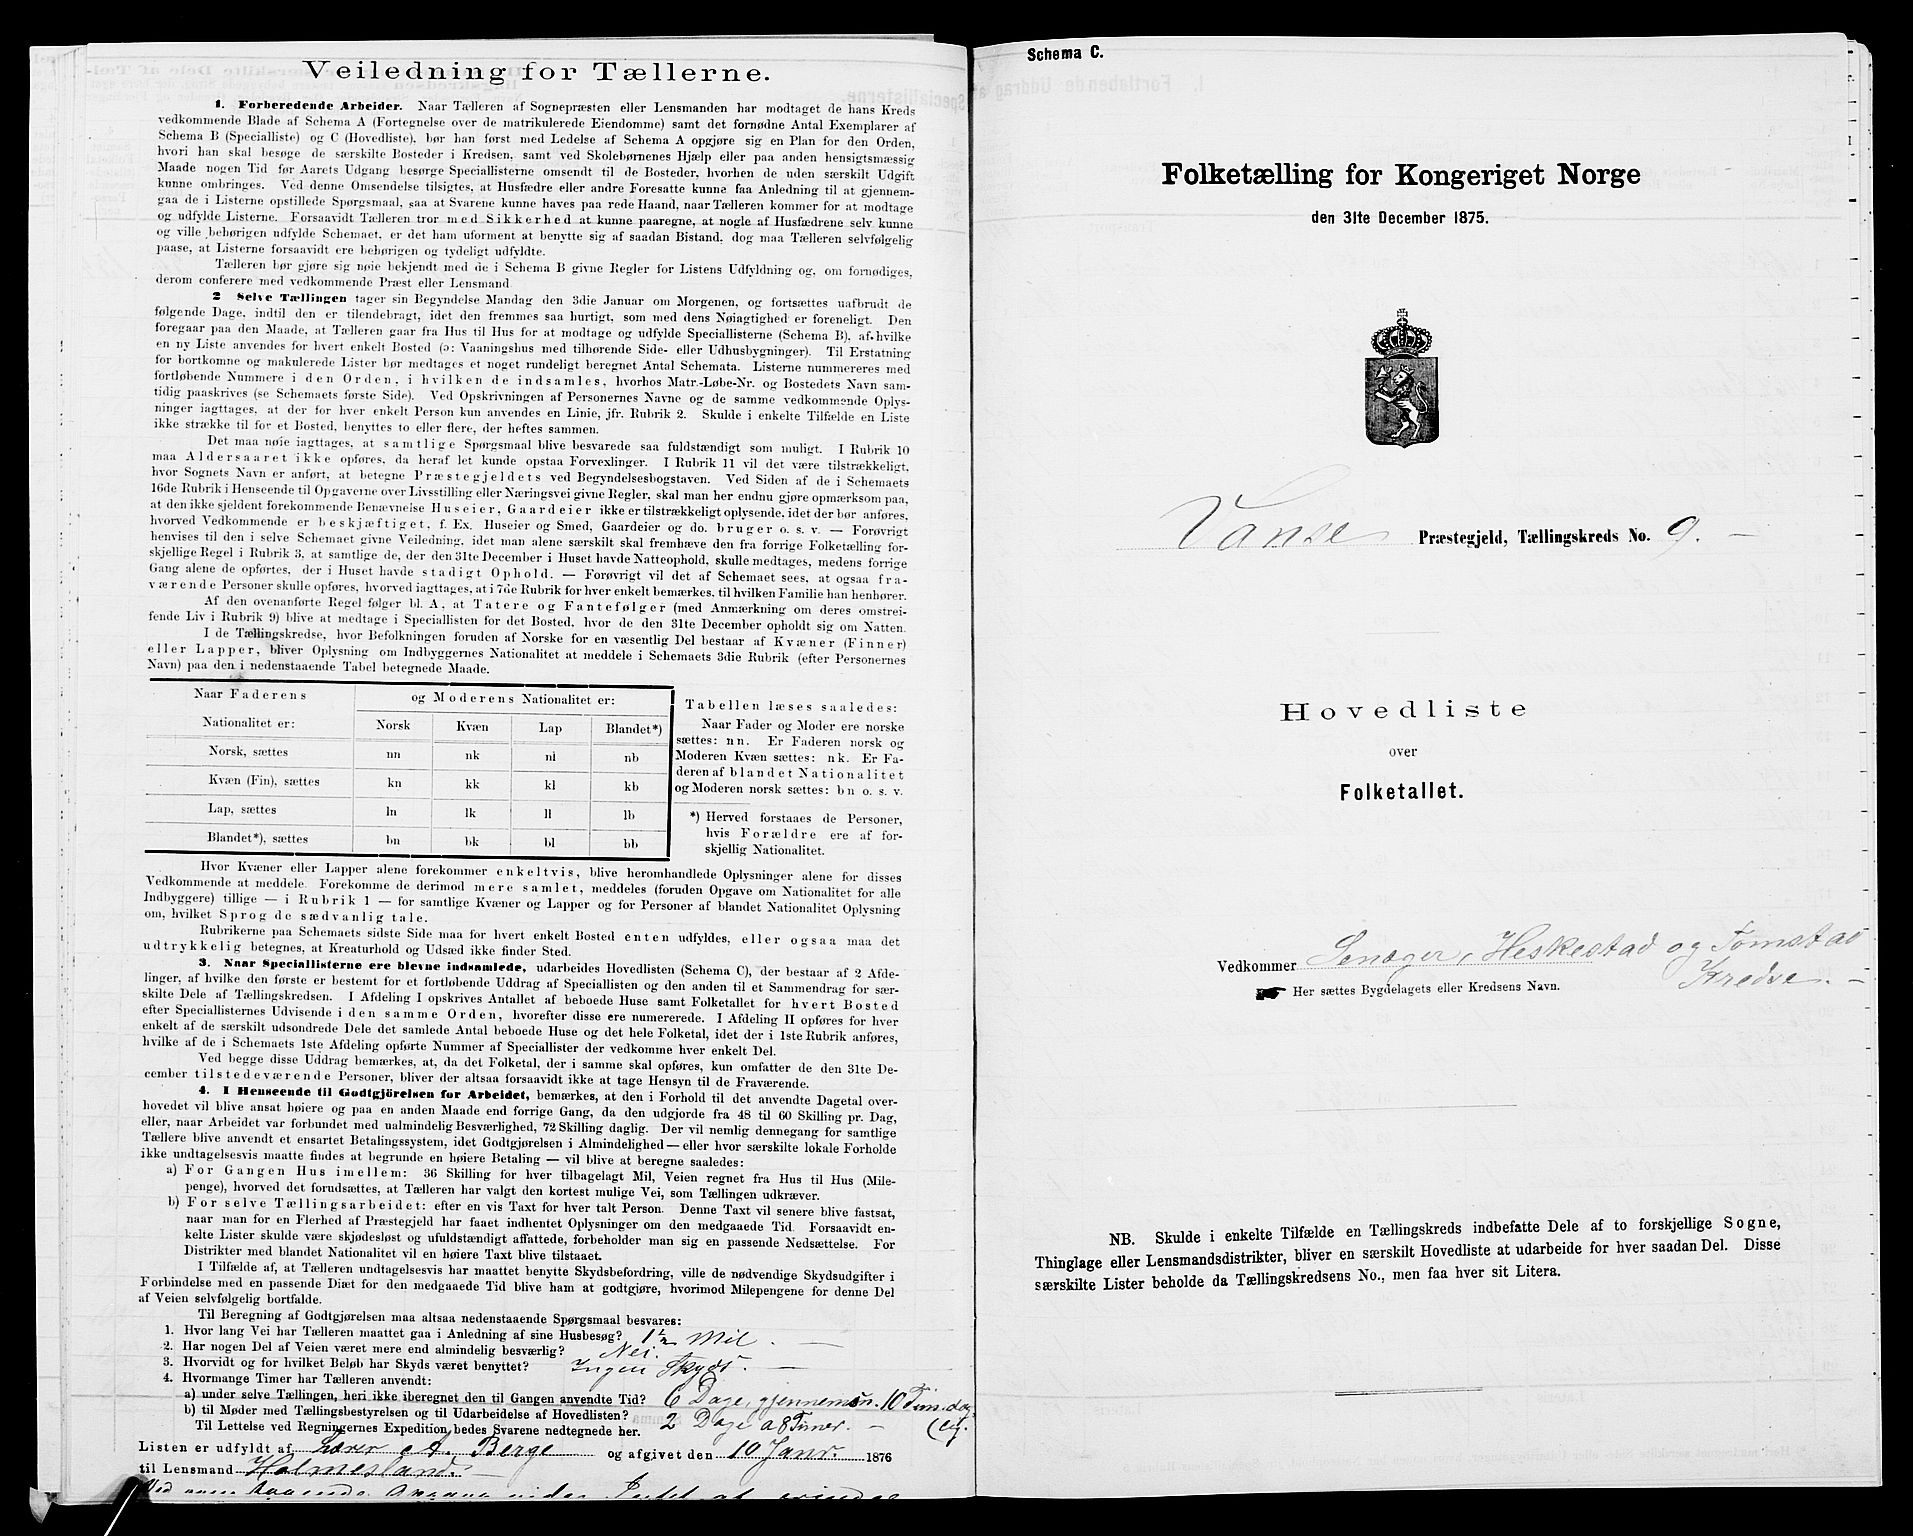 Veiledning for Tællerne.
1. Forberedende Arbeider. Naar Tælleren af Sognepræsten eller Lensmanden har modtaget de hans Kreds
vedkommende Blade af Schema A (Fortegnelse over de matrikulerede Eiendomme) samt det fornødne Antal Exemplarer af
Schema B (Specialliste) og C (Hovedliste), bør han først med Ledelse af Schema A opgjøre sig en Plan for den Orden,
hvori han skal besøge de særskilte Bosteder i Kredsen, samt ved Skolebørnenes Hjælp eller paa anden hensigtsmæssig
Maade nogen Tid før Aarets Udgang besørge Speciallisterne omsendt til de Bosteder, hvorhen de uden særskilt Udgift
kunne ombringes. Ved denne Omsendelse tilsigtes, at Husfædre eller andre Foresatte kunne faa Anledning til at gjennem-
gaa de i Listerne opstillede Spørgsmaal, saa at Svarene kunne haves paa rede Haand, naar Tælleren kommer for at modtage
og udfylde Listerne. Forsaavidt Tælleren tror med Sikkerhed at kunne paaregne, at nogle af Husfædrene selv kunne
og ville behørigen udfylde Schemaet, er det ham uforment at benytte sig af saadan Bistand, dog maa Tælleren selvfølgelig
paase, at Listerne forsaavidt ere behørigen og tydeligt udfyldte.
Tælleren bør gjøre sig nøie bekjendt med de i Schema B givne Regler for Listens Udfyldning og, om fornødiges,
derom conferere med vedkommende Præst eller Lensmand
2 Selve Tællingen tager sin Begyndelse Mandag den 3die Januar om Morgenen, og fortsættes uafbrudt de
følgende Dage, indtil den er tilendebragt, idet den fremmes saa hurtigt, som med dens Nøiagtighed er foreneligt. Den
foregaar paa den Maade, at Tælleren gaar fra Hus til Hus for at modtage og udfylde Speciallisterne (Schema B), af hvilke
en ny Liste anvendes for hvert enkelt Bosted (ɔ: Vaaningshus med tilhørende Side- eller Udhusbygninger). Til Erstatning
for bortkomne og makulerede Lister bør medtages et noget rundeligt beregnet Antal Schemata. Listerne nummereres med
fortløbende Nummere i den Orden, i hvilken de indsamles, hvorhos Matr.-Løbe-Nr. og Bostedets Navn sam-
tidig paaskrives (se Schemaets første Side). Ved Opskrivningen af Personernes Navne og de samme vedkommende Oplys-
ninger iagttages, at der for hver enkelt Person kun anvendes en Linie, jfr. Rubrik 2. Skulde i enkelte Tilfælde en Liste
ikke strække til for et Bosted, benyttes to eller flere, der heftes sammen.
Det maa nøie iagttages, at samtlige Spørgsmaal blive besvarede saa fuldstændigt som muligt. I Rubrik 10
maa Aldersaaret ikke opføres, da heraf let kunde opstaa Forvexlinger. I Rubrik 11 vil det være tilstrækkeligt,
hvor Sognets Navn er anført, at betegne Præstegjeldets ved Begyndelsesbogstaven. Ved Siden af de i Schemaets
16de Rubrik i Henseende til Opgaverne over Livsstilling eller Næringsvei givne Regler, skal man her endnu gjøre opmærksom paa,
at den ikke sjeldent forekommende Benævnelse Huseier, Gaardeier ikke er tilstrækkeligt oplysende, idet der bør anføres,
hvorved Vedkommende er beskjæftiget, f. Ex. Huseier og Smed, Gaardeier og do. bruger o. s. v. — Forøvrigt
henvises til den i selve Schemaet givne Veiledning, idet man alene særskilt skal fremhæve den fra forrige Folketælling for-
skjellige Regel i Rubrik 3, at samtlige de, der den 31te December i Huset havde Natteophold, skulle medtages, medens forrige
Gang alene de opførtes, der i Huset havde stadigt Ophold. — Forøvrigt vil det af Schemaet sees, at ogsaa fra-
værende Personer skulle opføres, hvorved iagttages, at i 7de Rubrik for hver enkelt bemærkes, til hvilken Familie han henhører.
Af den ovenanførte Regel følger bl. A., at Tatere og Fantefølger (med Anmærkning om deres omstrei-
fende Liv i Rubrik 9) blive at medtage i Speciallisten for det Bosted, hvor de den 31te December opholdt sig om Natten.
I de Tællingskredse, hvor Befolkningen foruden af Norske for en væsentlig Del bestaar af Kvæner (Finner)
eller Lapper, bliver Oplysning om Indbyggernes Nationalitet at meddele i Schemaets 3die Rubrik (efter Personernes
Navn) paa den i nedenstaaende Tabel betegnede Maade.
Naar Faderens og Moderens Nationalitet er:
Nationalitet er: Norsk Kvæn Lap Blandet*)
Norsk, sættes nn nk nl nb
Kvæn (Fin), sættes kn kk kl kb
Lap, sættes ln lk ll lb
Blandet*), sættes bn bk bl bb
Tabellen læses saaledes:
Naar Fader og Moder ere norske
sættes: nn. Er Faderen norsk og
Moderen Kvæn sættes: nk. Er Fa-
deren af blandet Nationalitet
og Moderen norsk sættes: bn o. s. v.
*) Herved forstaaes de Personer,
hvis Forældre ere af for-
skjellig Nationalitet.
Hvor Kvæner eller Lapper alene forekommer enkeltvis, blive heromhandlede Oplysninger alene for disses
Vedkommende at meddele. Forekomme de derimod mere samlet, meddeles (foruden Opgave om Nationalitet for alle
Indbyggere) tillige — i Rubrik 1 — for samtlige Kvæner og Lapper og for Personer af blandet Nationalitet Oplysning
om, hvilket Sprog de sædvanlig tale.
Rubrikerne paa Schemaets sidste Side maa for hvert enkelt Bosted enten udfyldes, eller ogsaa maa det
udtrykkelig betegnes, at Kreaturhold og Udsæd ikke finder Sted.
3. Naar Speciallisterne ere blevne indsamlede, udarbeides Hovedlisten (Schema C), der bestaar af 2 Afde-
linger, af hvilke den første er bestemt for et fortløbende Uddrag af Speciallisten og den anden til et Sammendrag for sær-
skilte Dele af Tællingskredsen. I Afdeling I opskrives Antallet af beboede Huse samt Folketallet for hvert Bosted
efter Speciallisternes Udvisende i den samme Orden, hvorefter disse ere numererede. I Afdeling II opføres for hver
enkelt af de særskilt udsondrede Dele det samlede Antal beboede Huse og det hele Folketal, idet der i 1ste Rubrik anføres,
hvilke af de i Schemaets 1ste Afdeling opførte Nummer af Speciallister der vedkomme hver enkelt Del.
Ved begge disse Uddrag bemærkes, at, da det Folketal, der i samme skal opføres, kun omfatter de den 31te De-
cember tilstedeværende Personer, bliver der altsaa forsaavidt ikke at tage Hensyn til de Fraværende.
4. I Henseende til Godtgjörelsen for Arbeidet, bemærkes, at den i Forhold til det anvendte Dagetal over-
hovedet vil blive ansat høiere og paa en anden Maade end forrige Gang, da den udgjorde fra 48 til 60 Skilling pr. Dag,
eller, naar Arbeidet var forbundet med ualmindelig Besværlighed, 72 Skilling daglig. Der vil nemlig dennegang for samtlige
Tællere blive anvendt et ensartet Betalingssystem, idet Godtgjørelsen i Almindelighed — eller hvor særskilte lokale Forholde
ikke undtagelsesvis maatte findes at begrunde en høiere Betaling — vil blive at beregne saaledes:
a) For Gangen Hus imellem: 36 Skilling for hver tilbagelagt Mil, Veien regnet fra Hus til Hus (Mile-
penge), hvorved det forudsættes, at Tælleren har valgt den kortest mulige Vei, som Tællingen udkræver.
b) For selve Tællingsarbeidet: efter en vis Taxt for hver talt Person. Denne Taxt vil senere blive fastsat,
naar man for en Flerhed af Præstegjeld har faaet indhentet Oplysninger om den medgaaede Tid. Forsaavidt en-
kelte Lister skulde være skjødesløst og ufuldstændigt affattede, forbeholder man sig en passende Nedsættelse. For
Distrikter med blandet Nationalitet vil en høiere Taxt blive tilstaaet.
I Tilfælde af, at Tælleren undtagelsesvis har maattet benytte Skydsbefordring, ville de nødvendige Skydsudgifter i
Forbindelse med en passende Diæt for den medgaaede Tid blive ham at godtgjøre, hvorimod Milepengene for denne Del
af Veien selvfølgelig bortfalde.
Til Beregning af Godtgjørelsen maa altsaa nedenstaaende Spørgsmaal besvares:
1. Hvor lang Vei har Tælleren maattet gaa i Anledning af sine Husbesøg? 1½ Mil —
2. Har nogen Del af Veien været mere end almindelig besværlig? Nei.
3. Hvorvidt og for hvilket Beløb har Skyds været benyttet? Ingen Skyds. —
4. Hvormange Timer har Tælleren anvendt:
a) under selve Tællingen, heri ikke iberegnet den til Gangen anvendte Tid? 6 Dage, gjennemsn. 10 Tim. dag-
b) til Møder med Tællingsbestyrelsen og til Udarbeidelse af Hovedlisten? 2 Dage a 8 Timer. — (lig.
Til Lettelse ved Regningernes Expedition bedes Svarene nedtegnede her.
Listen er udfyldt af Lærer A. Berge og afgivet den 10 Janr. 1876
til Lensmand Holmesland. —
Schema C.
Folketælling for Kongeriget Norge
den 31te December 1875.
Vanse Præstegjeld, Tællingskreds No. 9. —
Hovedliste
over
Folketallet.
Vedkommer Senæger, Heskestad og Tomstad
Kredse. —
Her sættes Bygdelagets eller Kredsens Navn.
NB. Skulde i enkelte Tilfælde en Tællingskreds indbefatte Dele af to forskjellige Sogne,
Thinglage eller Lensmandsdistrikter, bliver en særskilt Hovedliste at udarbeide for hver saadan Del. Disse
særskilte Lister beholde da Tællingskredsens No., men faa hver sit Litera.